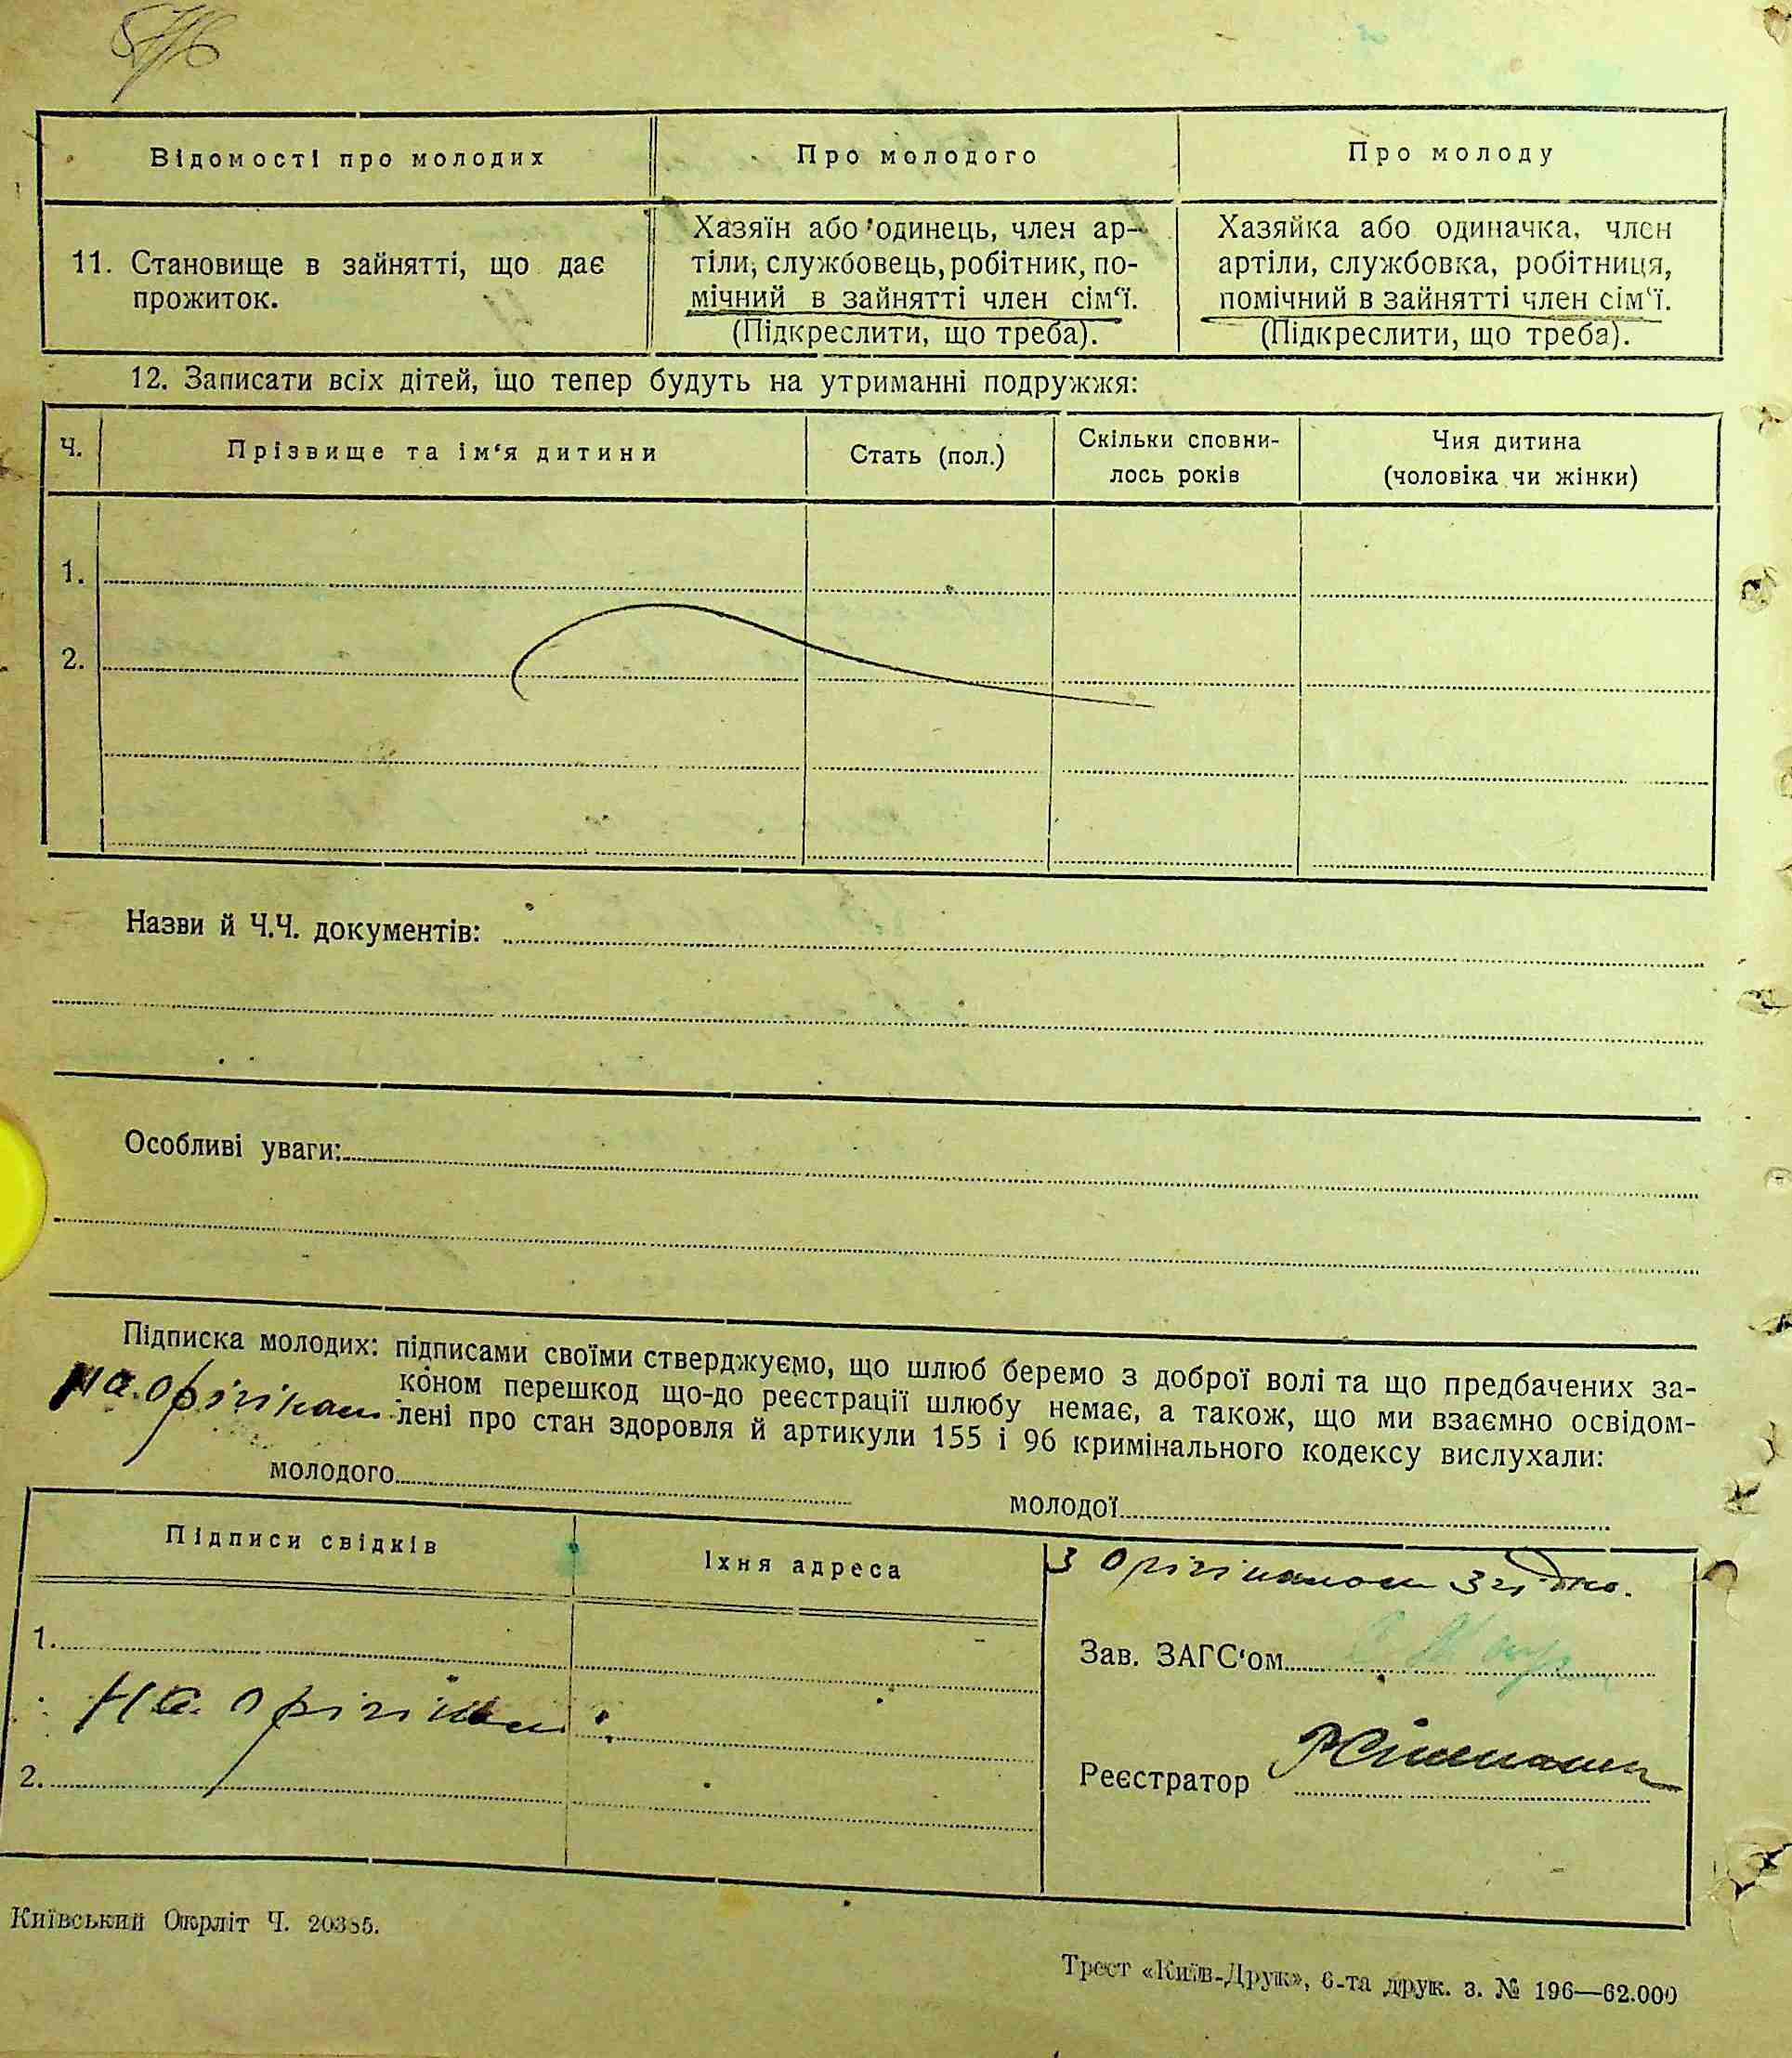 576
Відомості про молодих
Про молодого
Про молоду
11. Становище в зайнятті, що дає
прожиток.
Хазяїн або одинець, член ар-
тіли, службовець, робітник, по-
мічний в зайнятті член сім‘ї.
(Підкреслити, що треба).
Хазяйка або одиначка, член
артіли, службовка, робітниця,
помічний в зайнятті член сім‘ї.
(Підкреслити, що треба).
12. Записати всіх дітей, що тепер будуть на утриманні подружжя:
Ч.
Прізвище та ім‘я дитини
Стать (пол.)
Скільки сповни-
лось років
Чия дитина
(чоловіка чи жінки)
1.
2.
Назви й Ч.Ч. документів:
Особливі уваги:
Підписка молодих: підписами своїми стверджуємо, що шлюб беремо з доброї волі та що предбачених за-
коном перешкод що-до реєстрації шлюбу немає, а також, що ми взаємно освідом-
лені про стан здоровля й артикули 155 і 96 кримінального кодексу вислухали:
на орігінал
молодого
молодої
Підписи свідків
Їхня адреса
1.
На орігінал
2.
З Орігіналом Згідно.
Зав. ЗАГС‘ом
Реєстратор
Київський Окрліт Ч. 20385.
Трест «Київ-Друк», 6-та друк. з. № 196—62.000